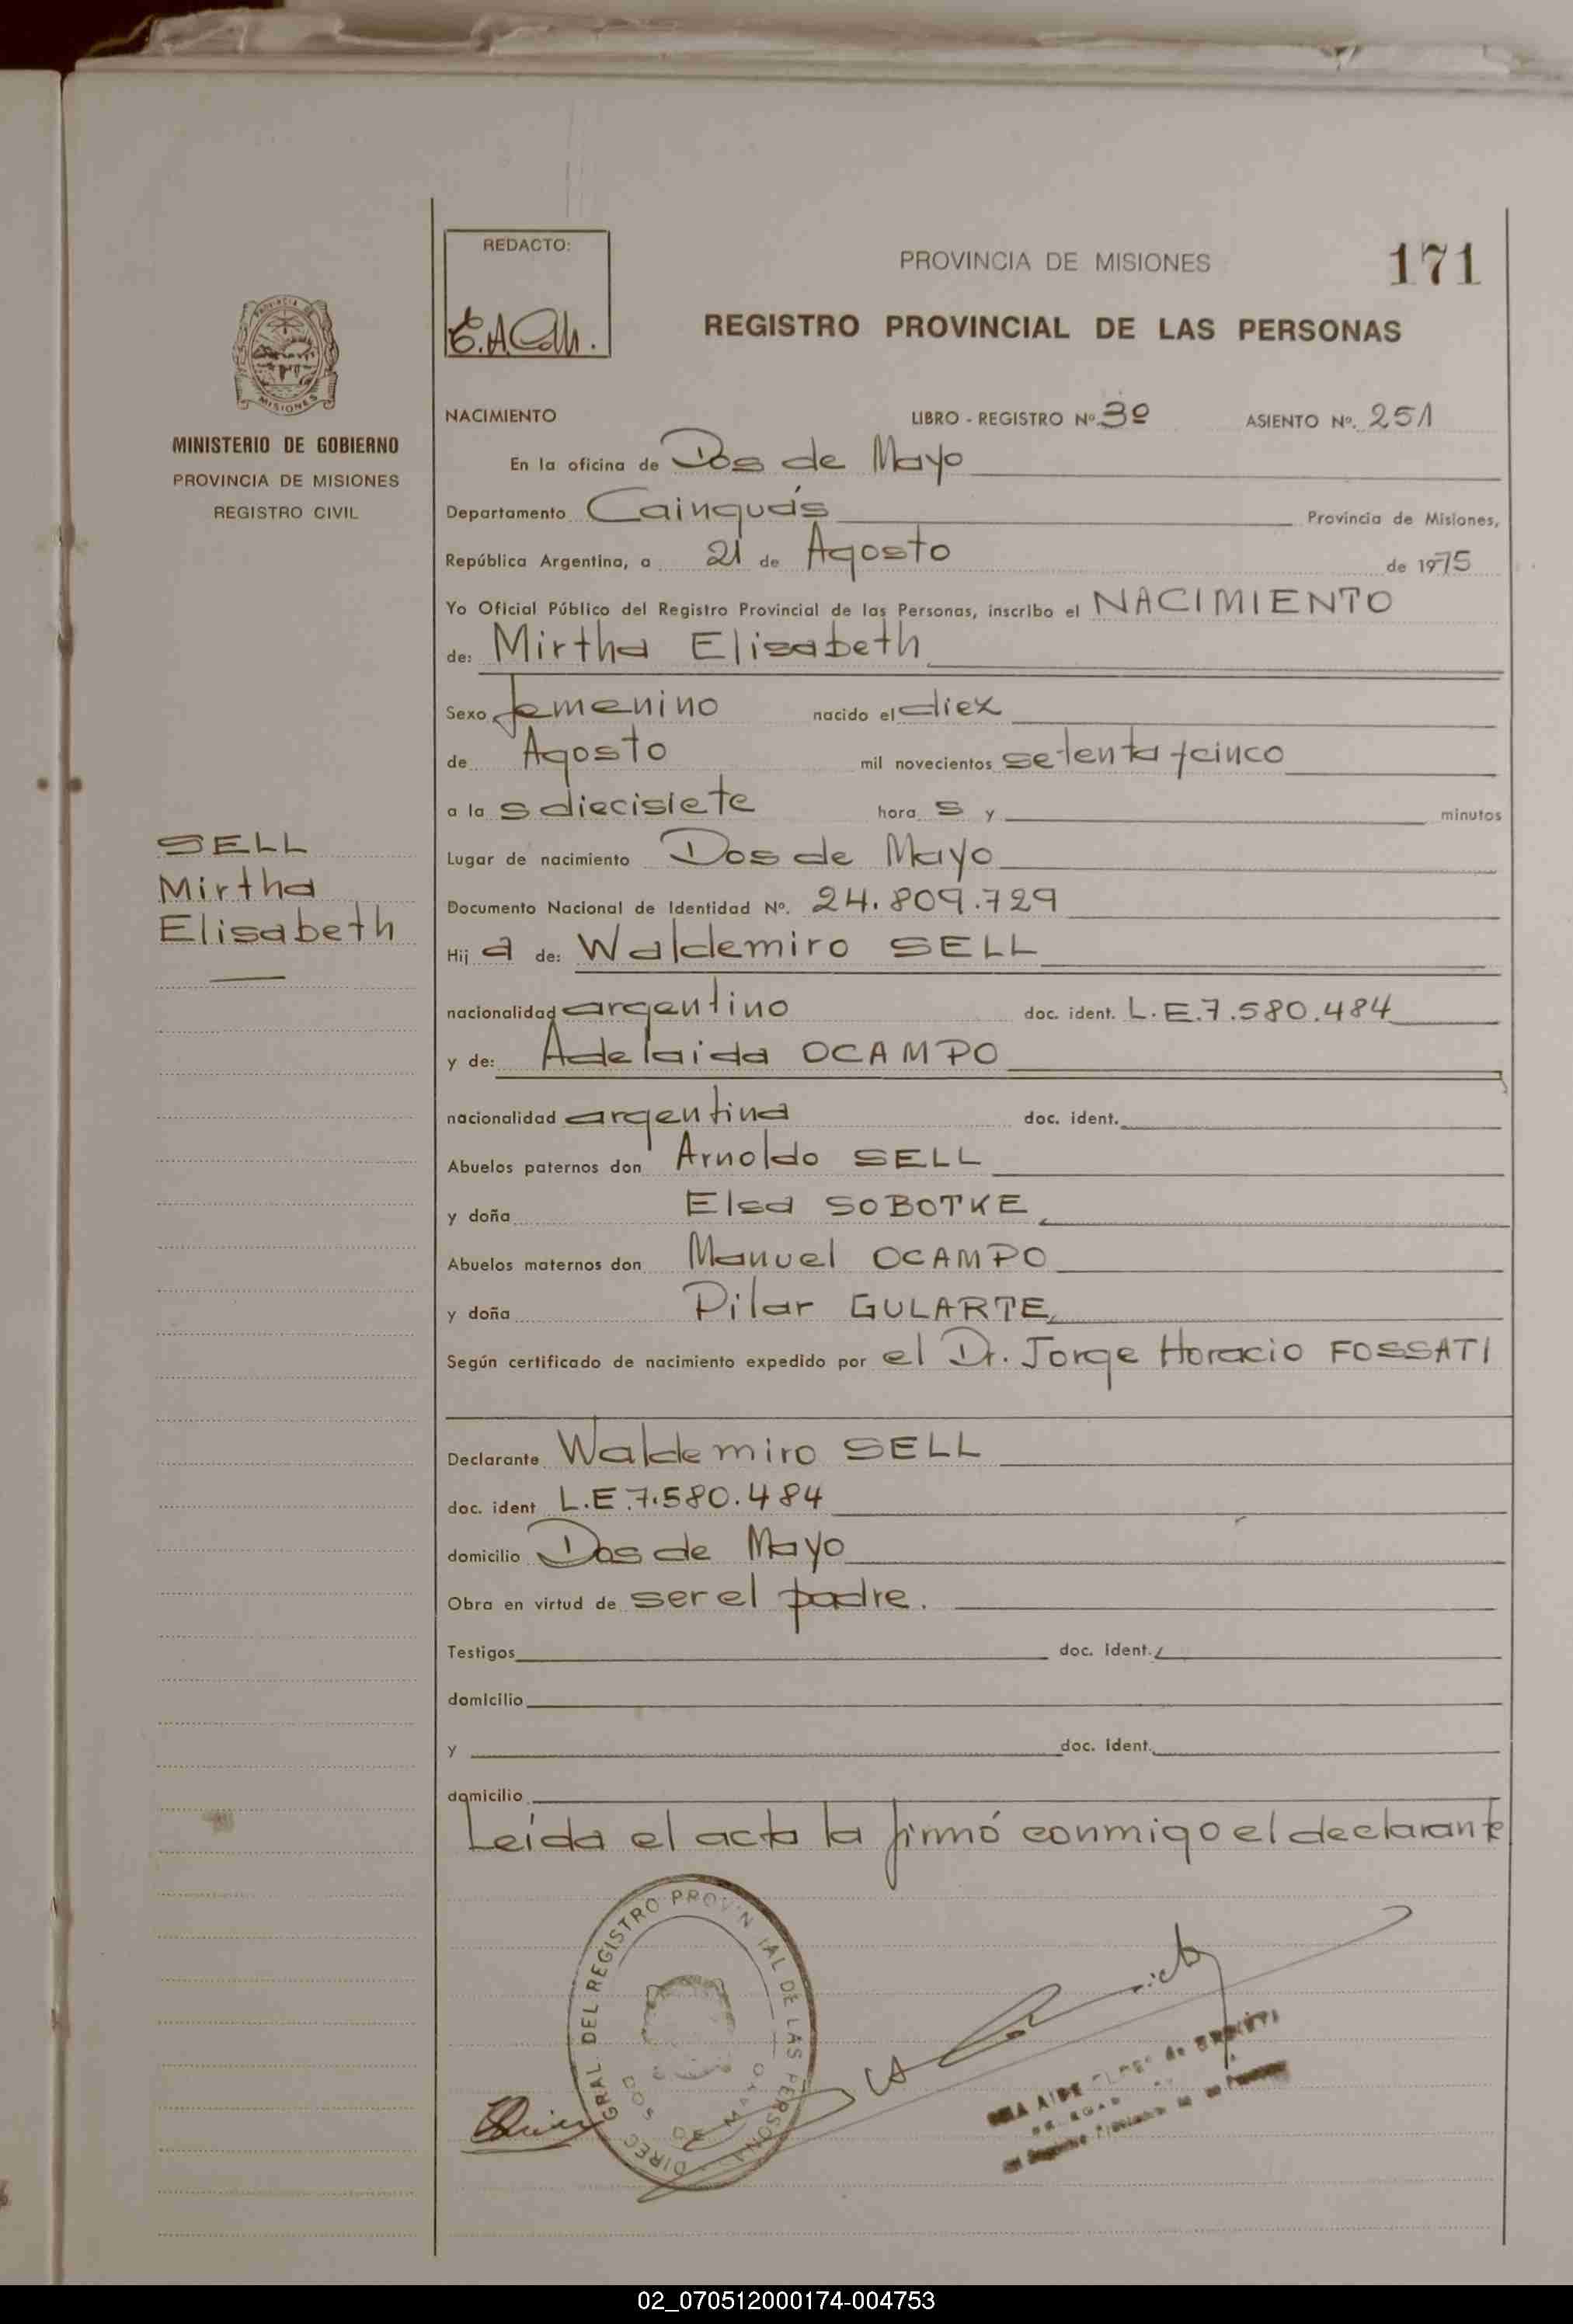 REDACTO:
E.A.
PROVINCIA DE MISIONES
171
REGISTRO PROVINCIAL DE LAS PERSONAS
PROVINCIA DE
MISIONES
MINISTERIO DE GOBIERNO
PROVINCIA DE MISIONES
REGISTRO CIVIL
SELL
Mirtha
Elisabeth
NACIMIENTO LIBRO - REGISTRO Nº 3º ASIENTO Nº. 251
En la oficina de Dos de Mayo
Departamento Cainguás Provincia de Misiones,
República Argentina, a 21 de Agosto de 1975
Yo Oficial Público del Registro Provincial de las Personas, inscribo el NACIMIENTO
de: Mirtha Elisabeth
Sexo femenino nacido el diez
de Agosto mil novecientos setenta y cinco
a la s diecisiete hora s y minutos
Lugar de nacimiento Dos de Mayo
Documento Nacional de Identidad Nº. 24.809.729
Hij a de: Waldemiro SELL
nacionalidad argentino doc. ident. L.E.7.580.484
y de: Adelaida OCAMPO
nacionalidad argentina doc. ident.
Abuelos paternos don Arnoldo SELL
y doña Elsa SOBOTKE
Abuelos maternos don Manuel OCAMPO
y doña Pilar GULARTE
Según certificado de nacimiento expedido por el Dr. Jorge Horacio FOSSATI
Declarante Waldemiro SELL
doc. ident L.E.7.580.484
domicilio Dos de Mayo
Obra en virtud de ser el padre.
Testigos doc. ident.
domicilio
y doc. ident.
domicilio
Leída el acta la firmó conmigo el declarante
DIREC GRAL. DEL REGISTRO PROVIN IAL DE LAS PERSONA
DOS DE MAYO
02_070512000174-004753